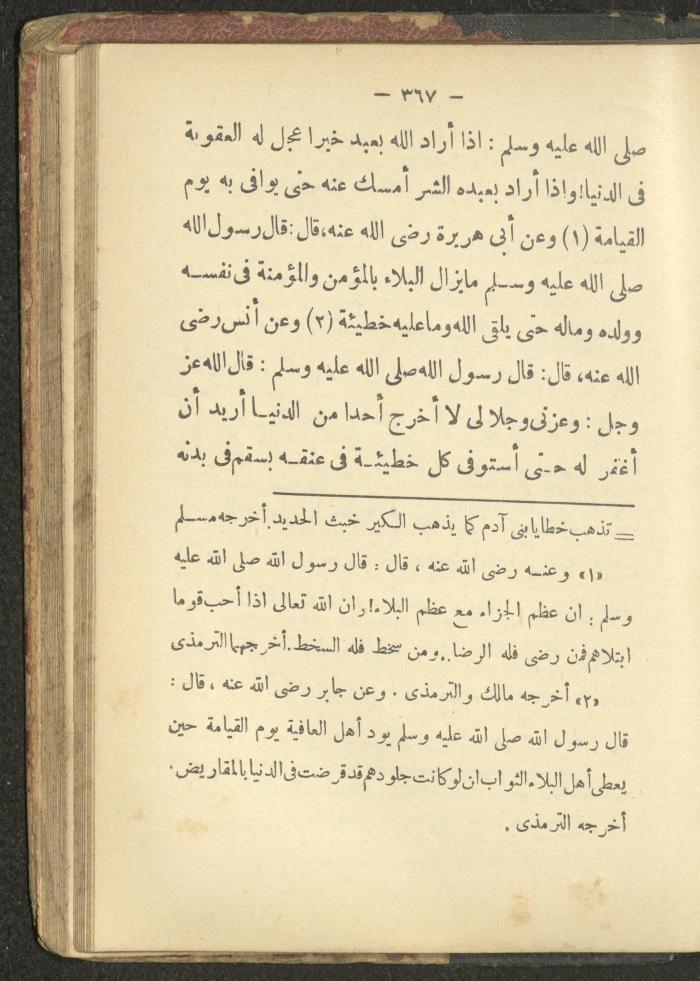 — ٣٦٧ —
صلى الله عليه وسلم : اذا أراد الله بعبد خيرا عجل له العقوبة
فى الدنيا!واذا أراد بعبده الشر أمسك عنه حتى يوافى به يوم
القيامة (١) وعن أبى هريرة رضى الله عنه،قال:قال رسول الله
صلى الله عليه وسلم مايزال البلاء بالمؤمن والمؤمنة فى نفسه
وولده وماله حتى يلقى الله وماعليه خطيئة (٢) وعن أنس رضى
الله عنه، قال: قال رسول الله صلى الله عليه وسلم : قال الله عز
وجل : وعزتى وجلالى لا أخرج أحدا من الدنيا أريد أن
أغفر له حتى أستوفى كل خطيئة فى عنقه بسقم فى بدنه
= تذهب خطايا بنى آدم كما يذهب الكير خبث الحديد.أخرجه مسلم
«١» وعنه رضى الله عنه ، قال : قال رسول الله صلى الله عليه
وسلم : ان عظم الجزاء مع عظم البلاء!وان الله تعالى اذا أحب قوما
ابتلاهم فمن رضى فله الرضا..ومن سخط فله السخط.أخرجهما الترمذى
«٢» أخرجه مالك والترمذى . وعن جابر رضى الله عنه ، قال :
قال رسول الله صلى الله عليه وسلم يود أهل العافية يوم القيامة حين
يعطى أهل البلاء الثواب ان لو كانت جلودهم قد قرضت فى الدنيا بالمقاريض.
أخرجه الترمذى .